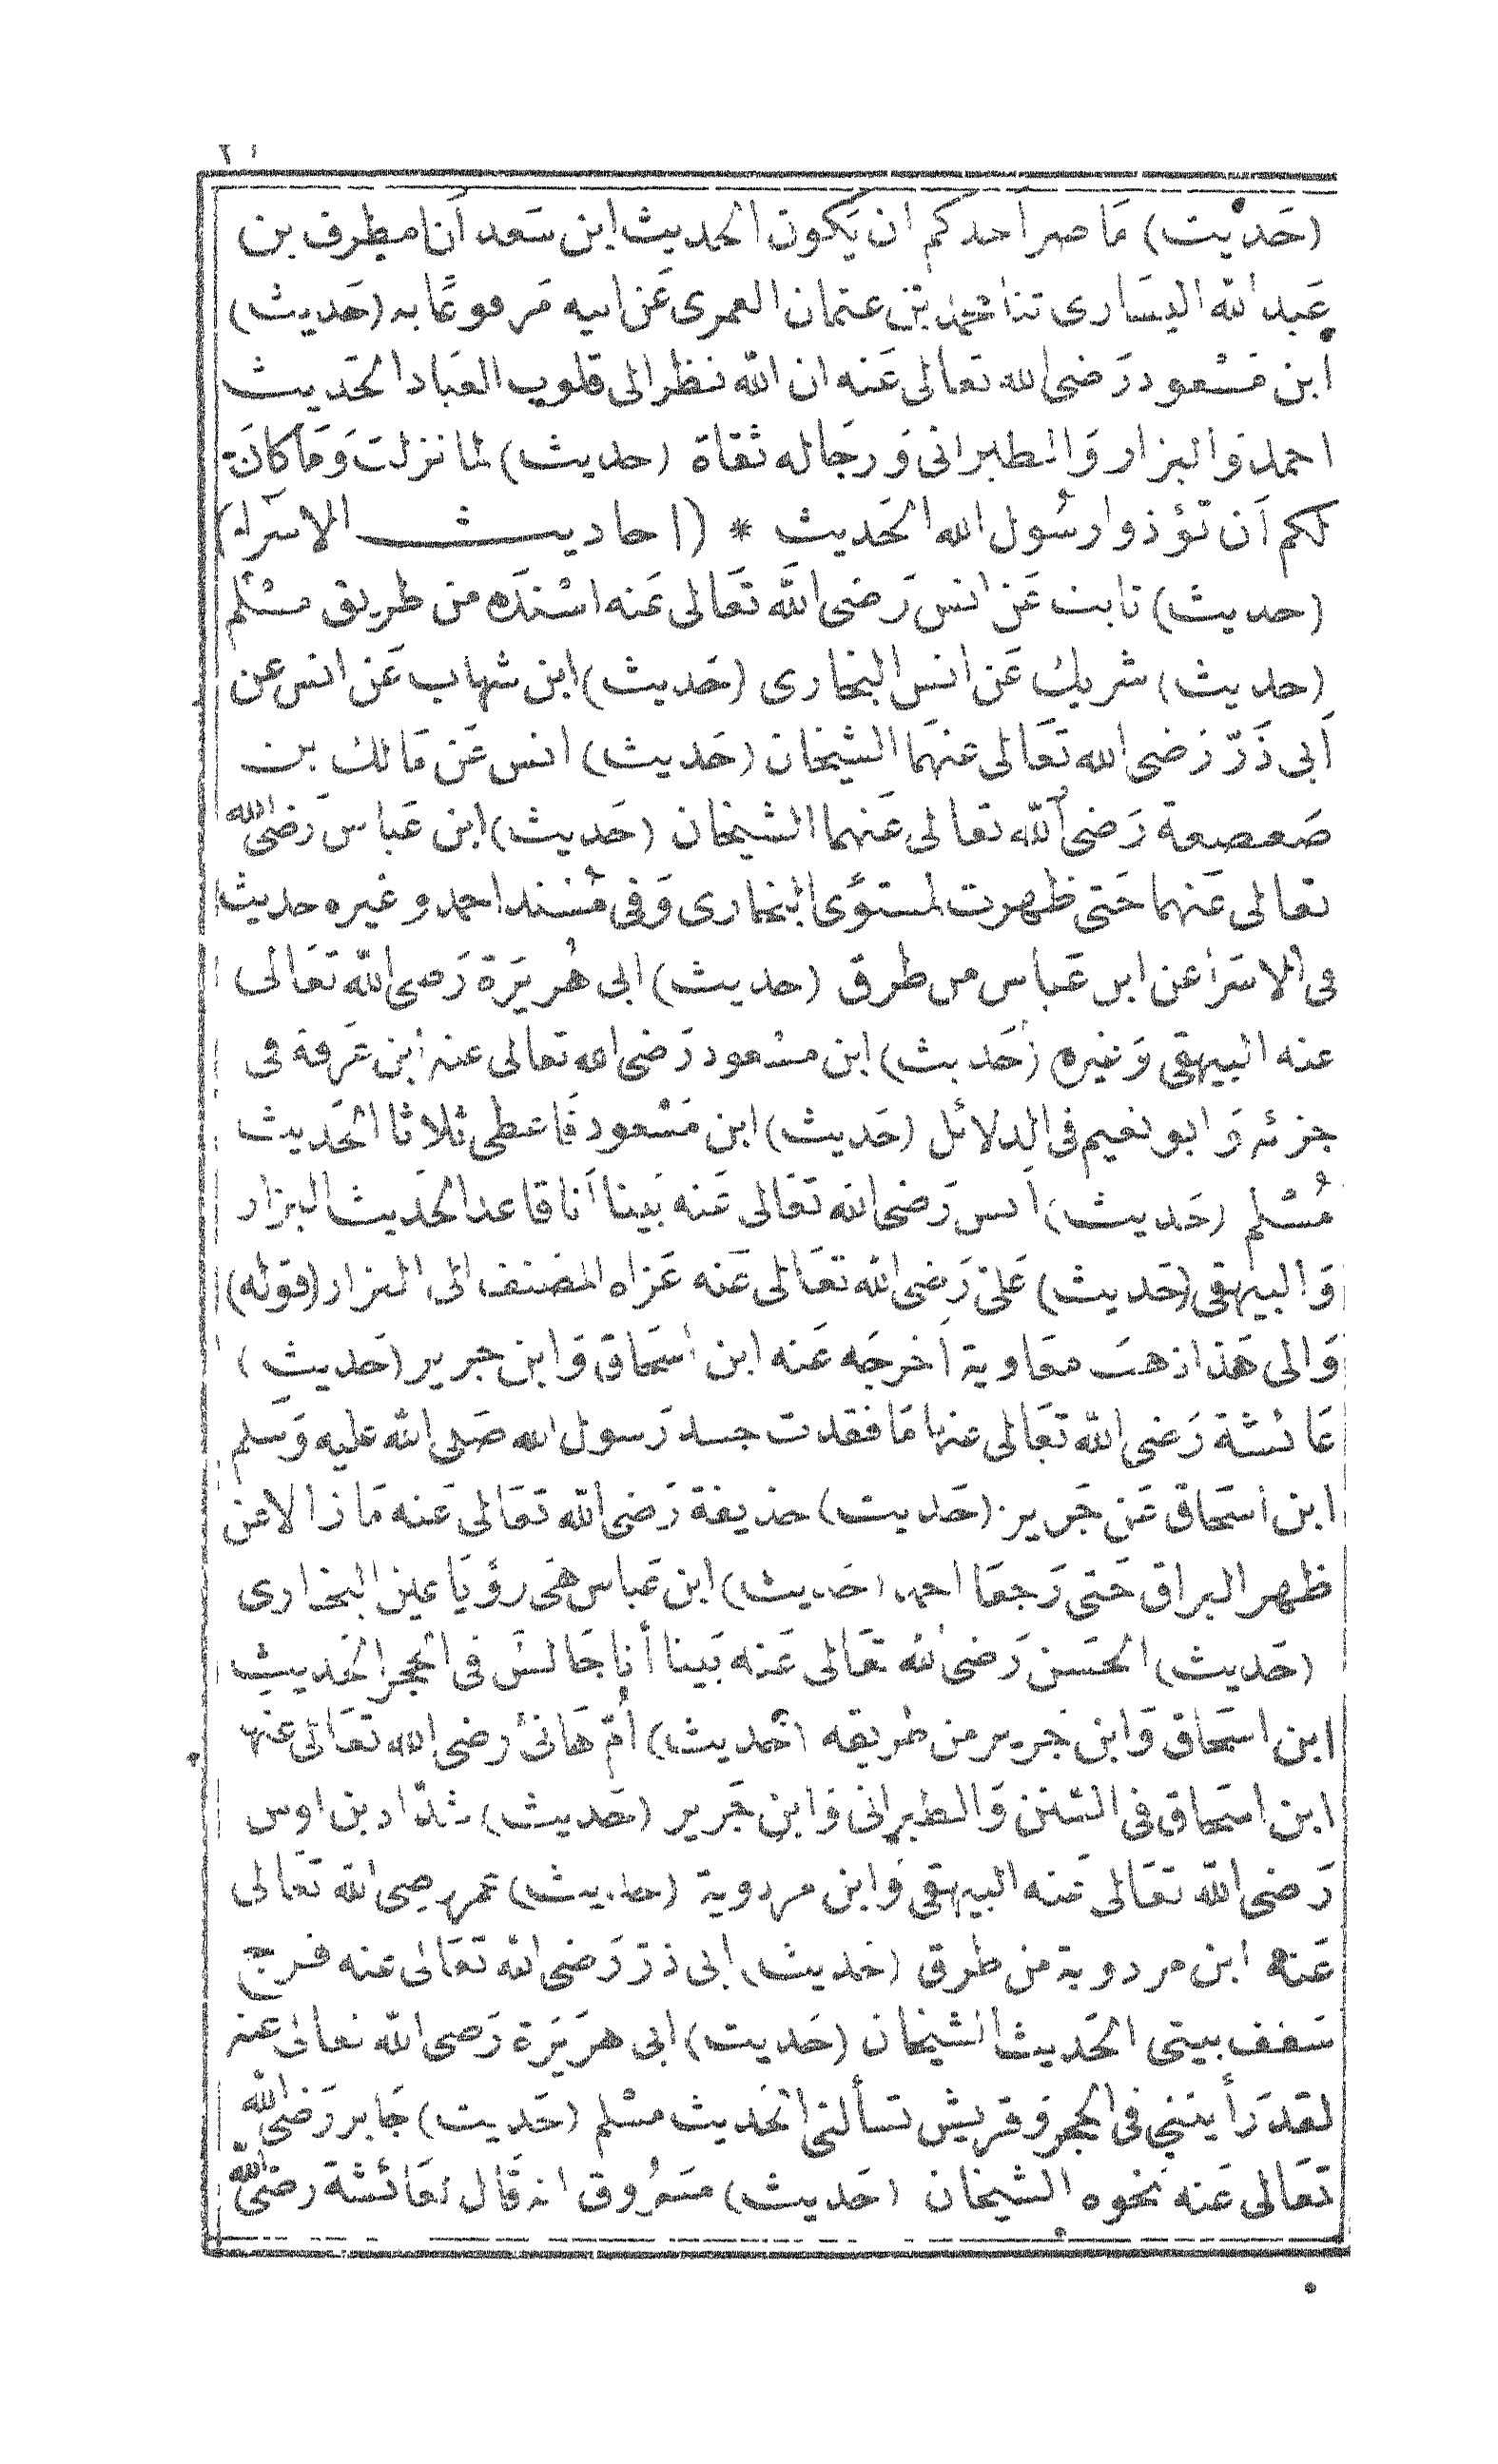 (حَديث) مَا ضر أحدكم ان يَكون الحديث ابن سَعد أنا مطرف بن
عَبد الله اليسَارى ثنا محمد بن عثمان العمرى عَن ابيه مَرفوعًا به (حَديث)
أبن مَسْعود رَضى الله تعالى عَنه ان الله نظر الى قلوب العبَاد الحَديث
احمد وَالبزار وَالطبرانى وَرجَاله ثقاة (حديث) لما نزلت وَمَا كانَ
لكم أن تؤذوا رسُول الله الحَديث * (احاديث الاسرَاء)
(حديث) ثابت عَن انس رَضى الله تعَالى عَنه اسْندَه من طريق مسْلم
(حديث) شريك عَن انس البخارى (حَديث) ابن شهاب عَن انس عن
أبى ذَرّ رَضى الله تعَالى عنهمَا الشيخان (حَديث) انس عَن مَالك بن
صَعصعة رَضى الله تعالى عَنهما الشيخان (حَديث) ابن عَباس رَضى الله
تعالى عَنهما حَتى ظهرت لمستوًى البخارى وَفى مُسْند احمد وغيره حديث
فى الاسرَا عن ابن عَباس من طرق (حديث) ابى هُريَرة رَضى الله تعَالى
عنه البيهقى وَغيره (حَديث) ابن مسْعود رَضى الله تعالى عنه ابن عَرفة فى
جزئه وَابو نعيم فى الدلائل (حَديث) ابن مَسْعود فَاعطى ثلاثا الحَديث
مُسْلم (حَديث) أنس رَضى الله تعَالى عَنه بَينا أنا قاعد الحَديث البزار
وَالبيهقى (حَديث) عَلىّ رَضى الله تعَالى عَنه عَزاه المصَنف الى البزار (قوله)
وَالى هَذا ذهبَ معَاوية أخرجَه عَنه ابن اسحَاق وَابن جرير (حَديث)
عَائشة رَضى الله تعَالى عنها مَا فقدت جسد رَسول الله صَلى الله عليه وَسلم
ابن اسحَاق عَن جَرير (حَديث) حذيفة رَضى الله تعَالى عَنه مَا زالا عن
ظهر البراق حَتى رَجعَا احمد (حَديث) ابن عَباس هىَ رؤيَا عين البخارى
(حَديث) الحسَن رَضى الله تعَالى عَنه بَينا أنا جَالسَ فى الحجر الحَديث
ابن اسحَاق وَابن جَرير من طريقه (حَديث) أُمّ هَانئ رضى الله تعَالى عنها
ابن اسحَاق فى السْنن وَالطبرانى وَابن جَرير (حَديث) شدّاد بن اوس
رَضى الله تعَالى عَنه البيهقى وَابن مردوية (حديث) عمر رضى الله تعَالى
عَنه ابن مردوية من طرق (حَديث) أبى ذرّ رَضى الله تعَالى عنه فرج
سَقف بيتى الحَديث الشيخان (حَديث) ابى هرَيَرة رَضى الله تعالى عنه
لقد رَأيتنى فى الحجر وَقريش تسألنى الحَديث مسْلم (حَديث) جَابر رَضى الله
تعَالى عَنه نحوه الشيخان (حَديث) مسَرُوق انه قَال لعَائشة رضىَ الله